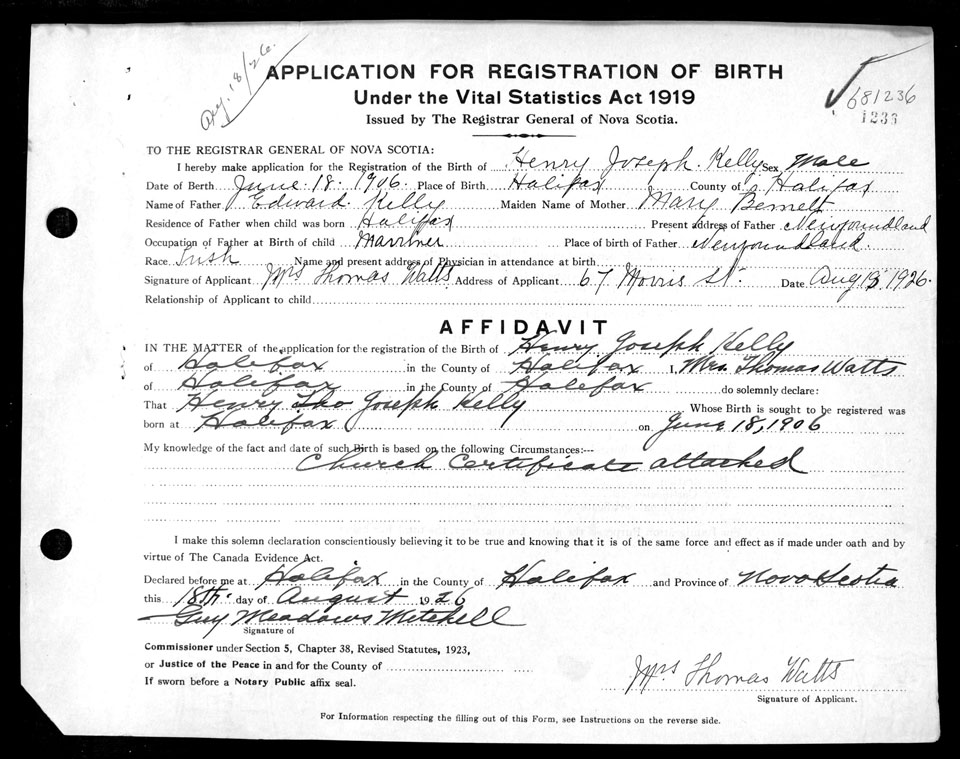 Aug. 18/26.
APPLICATION FOR REGISTRATION OF BIRTH
Under the Vital Statistics Act 1919
Issued by The Registrar General of Nova Scotia.
681236
1236
TO THE REGISTRAR GENERAL OF NOVA SCOTIA:
I hereby make application for the Registration of the Birth of Henry Joseph Kelly Sex Male
Date of Birth June 18. 1906. Place of Birth Halifax County of Halifax
Name of Father Edward Kelly Maiden Name of Mother Mary
Residence of Father when child was born Halifax Present address of Father Newfoundland
Occupation of Father at Birth of child Marriner Place of birth of Father Newfoundland.
Race Irish Name and present address of Physician in attendance at birth
Signature of Applicant Mrs Thomas Watts Address of Applicant 67 Morris St. Date Aug 1926.
Relationship of Applicant to child
AFFIDAVIT
IN THE MATTER of the application for the registration of the Birth of Henry Joseph Kelly
of Halifax in the County of Halifax I, Mrs. Thomas Watts
of Halifax in the County of Halifax do solemnly declare:
That Henry Tho Joseph Kelly Whose Birth is sought to be registered was
born at Halifax on June 18, 1906
My knowledge of the fact and date of such Birth is based on the following Circumstances:—
Church Certificate attached
I make this solemn declaration conscientiously believing it to be true and knowing that it is of the same force and effect as if made under oath and by
virtue of The Canada Evidence Act.
Declared before me at Halifax in the County of Halifax and Province of Nova Scotia
this 18th. day of August 1926
Guy Meadows Mitchell
Signature of
Commissioner under Section 5, Chapter 38, Revised Statutes, 1923,
or Justice of the Peace in and for the County of
If sworn before a Notary Public affix seal.
Mrs Thomas Watts
Signature of Applicant.
For Information respecting the filling out of this Form, see Instructions on the reverse side.